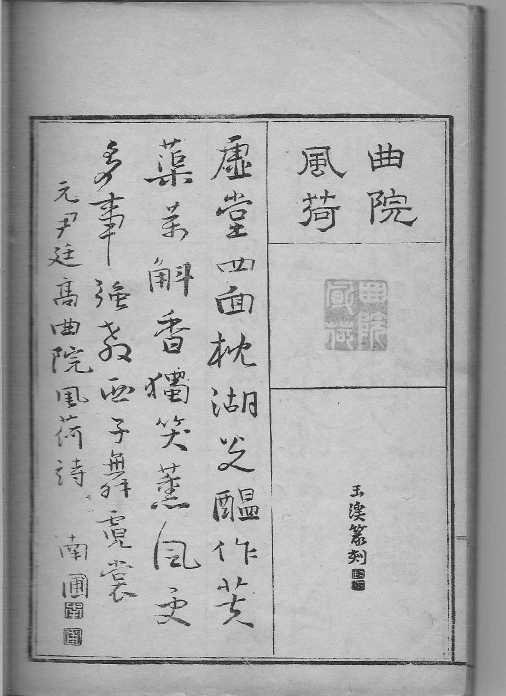 曲院
風荷
曲院
風荷
玉溪篆刻
虛堂四面枕湖光醖作芙
蕖萬斛香獨笑薰風更
多事強教西子舞霓裳
元尹廷高曲院風荷詩 南圃